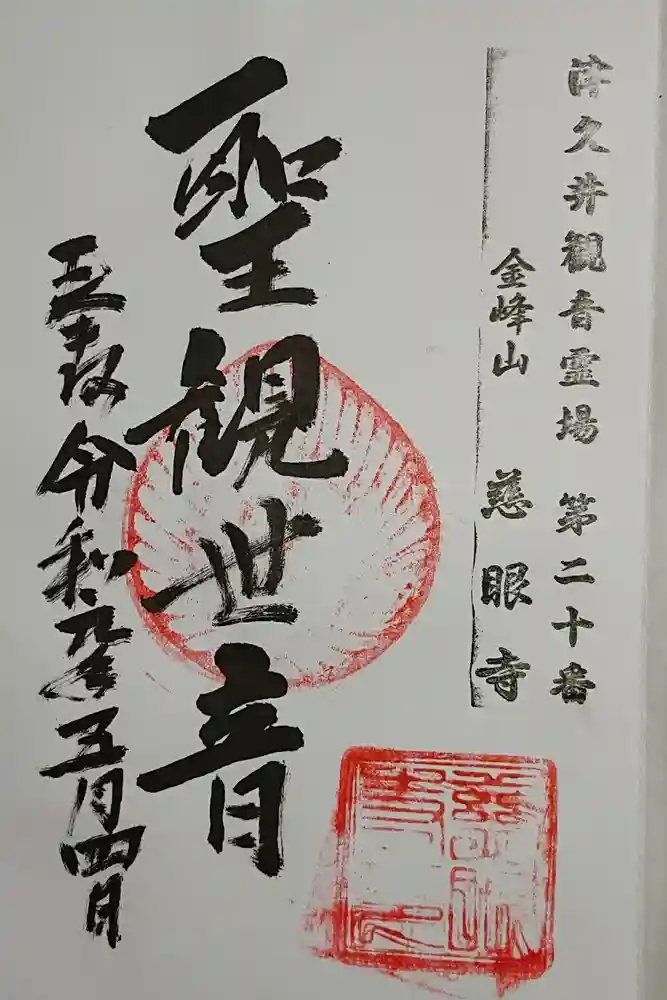 津久井観音霊場 第二十番
金峰山 慈眼寺
聖観世音
令和元年五月四日
慈眼
寺印